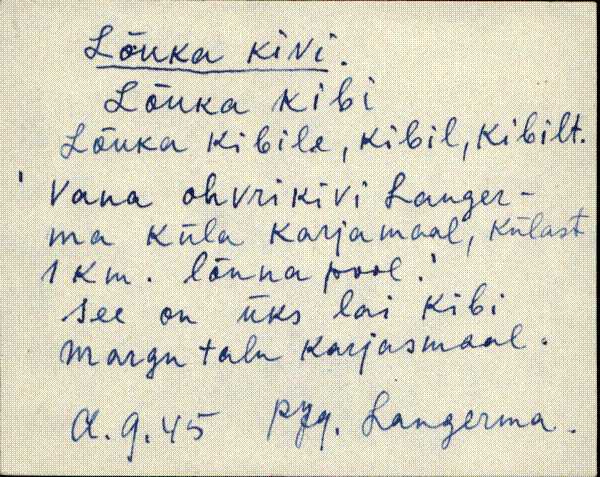 Lõuka kivi.
Lõuka kibi
Lõuka kibile, kibil, kibilt.
' Vana ohvrikivi Langer-
ma küla karjamaal, külast
1 km. lõuna pool.'
see on üks lai kibi
Margu talu karjasmaal.
A. g. 45 Langerma.